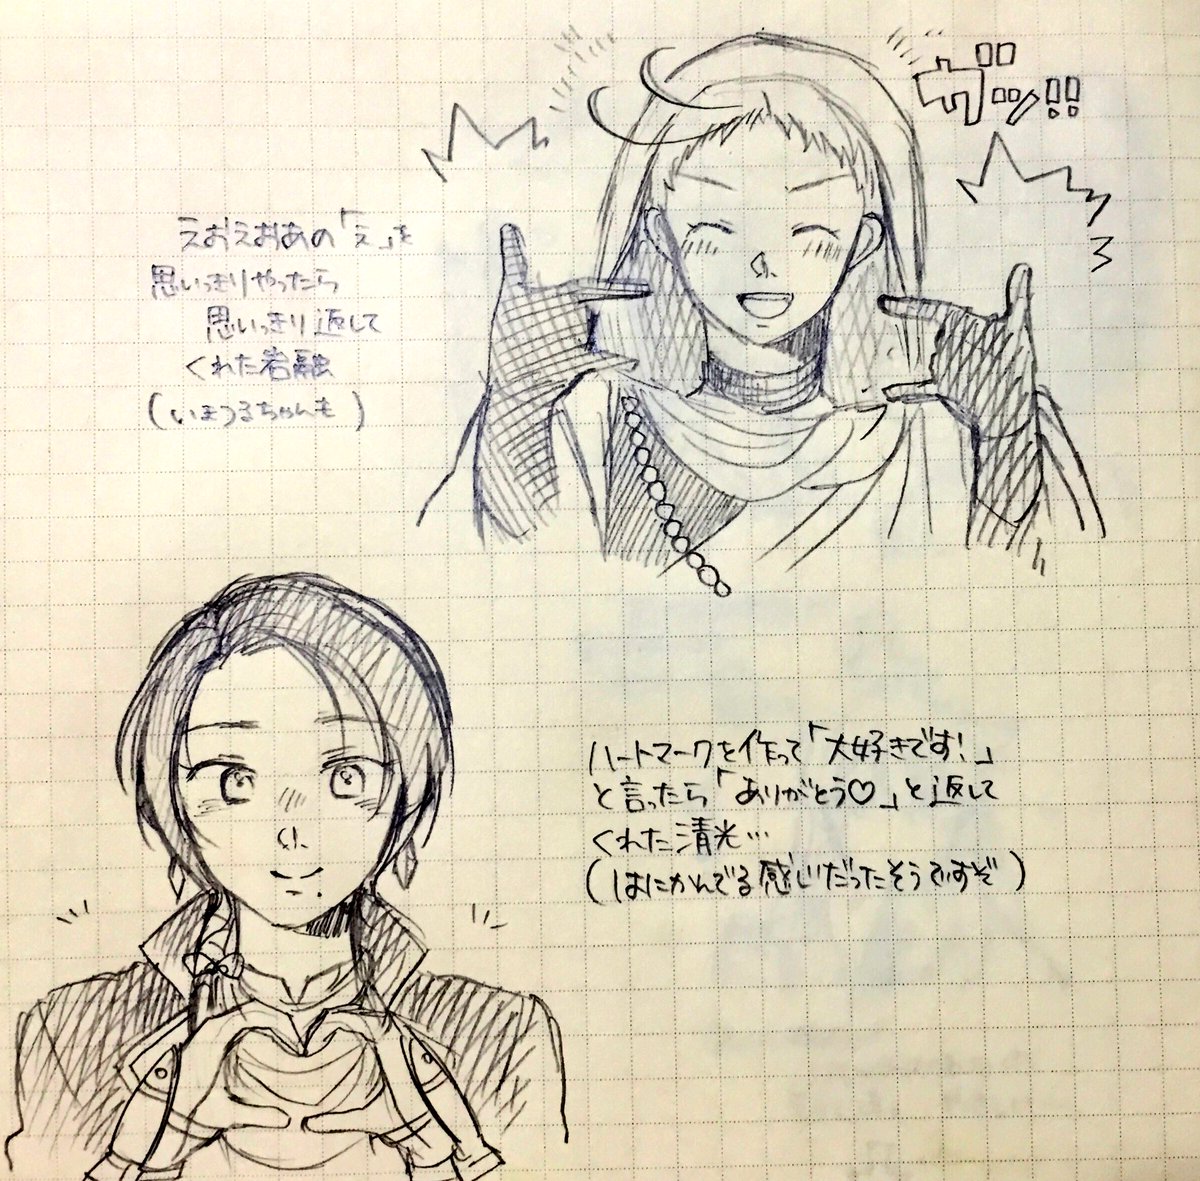 ガッ!!
えおえおあの「え」を
思いっきりやったら
思いっきり返して
くれた岩融
(いまつるちゃんも)
ハートマークを作って「大好きです!」
と言ったら「ありがとう♡」と返して
くれた清光…
(はにかんでる感じだったそうですぞ)